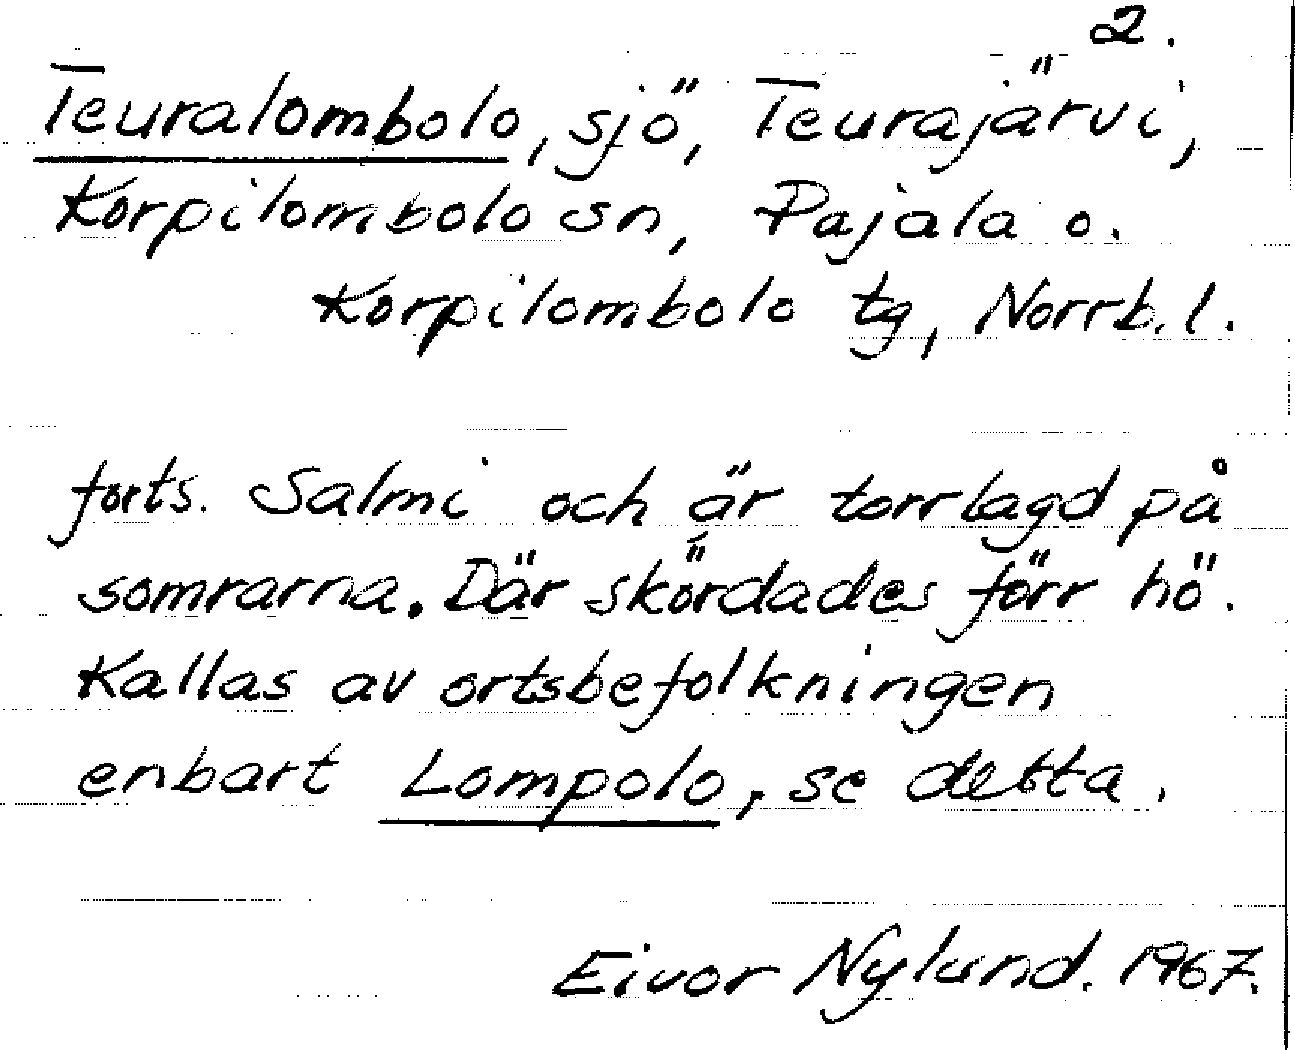 2.
Teuralombolo, sjö, Teurajärvi,
Korpilombolo sn, Pajala o.
Korpilombolo tg, Norrb. l.
forts. Salmi och är torrlagd på
somrarna. Där skördades förr hö.
Kallas av ortsbefolkningen
enbart Lompolo, se detta.
Eivor Nylund. 1967.